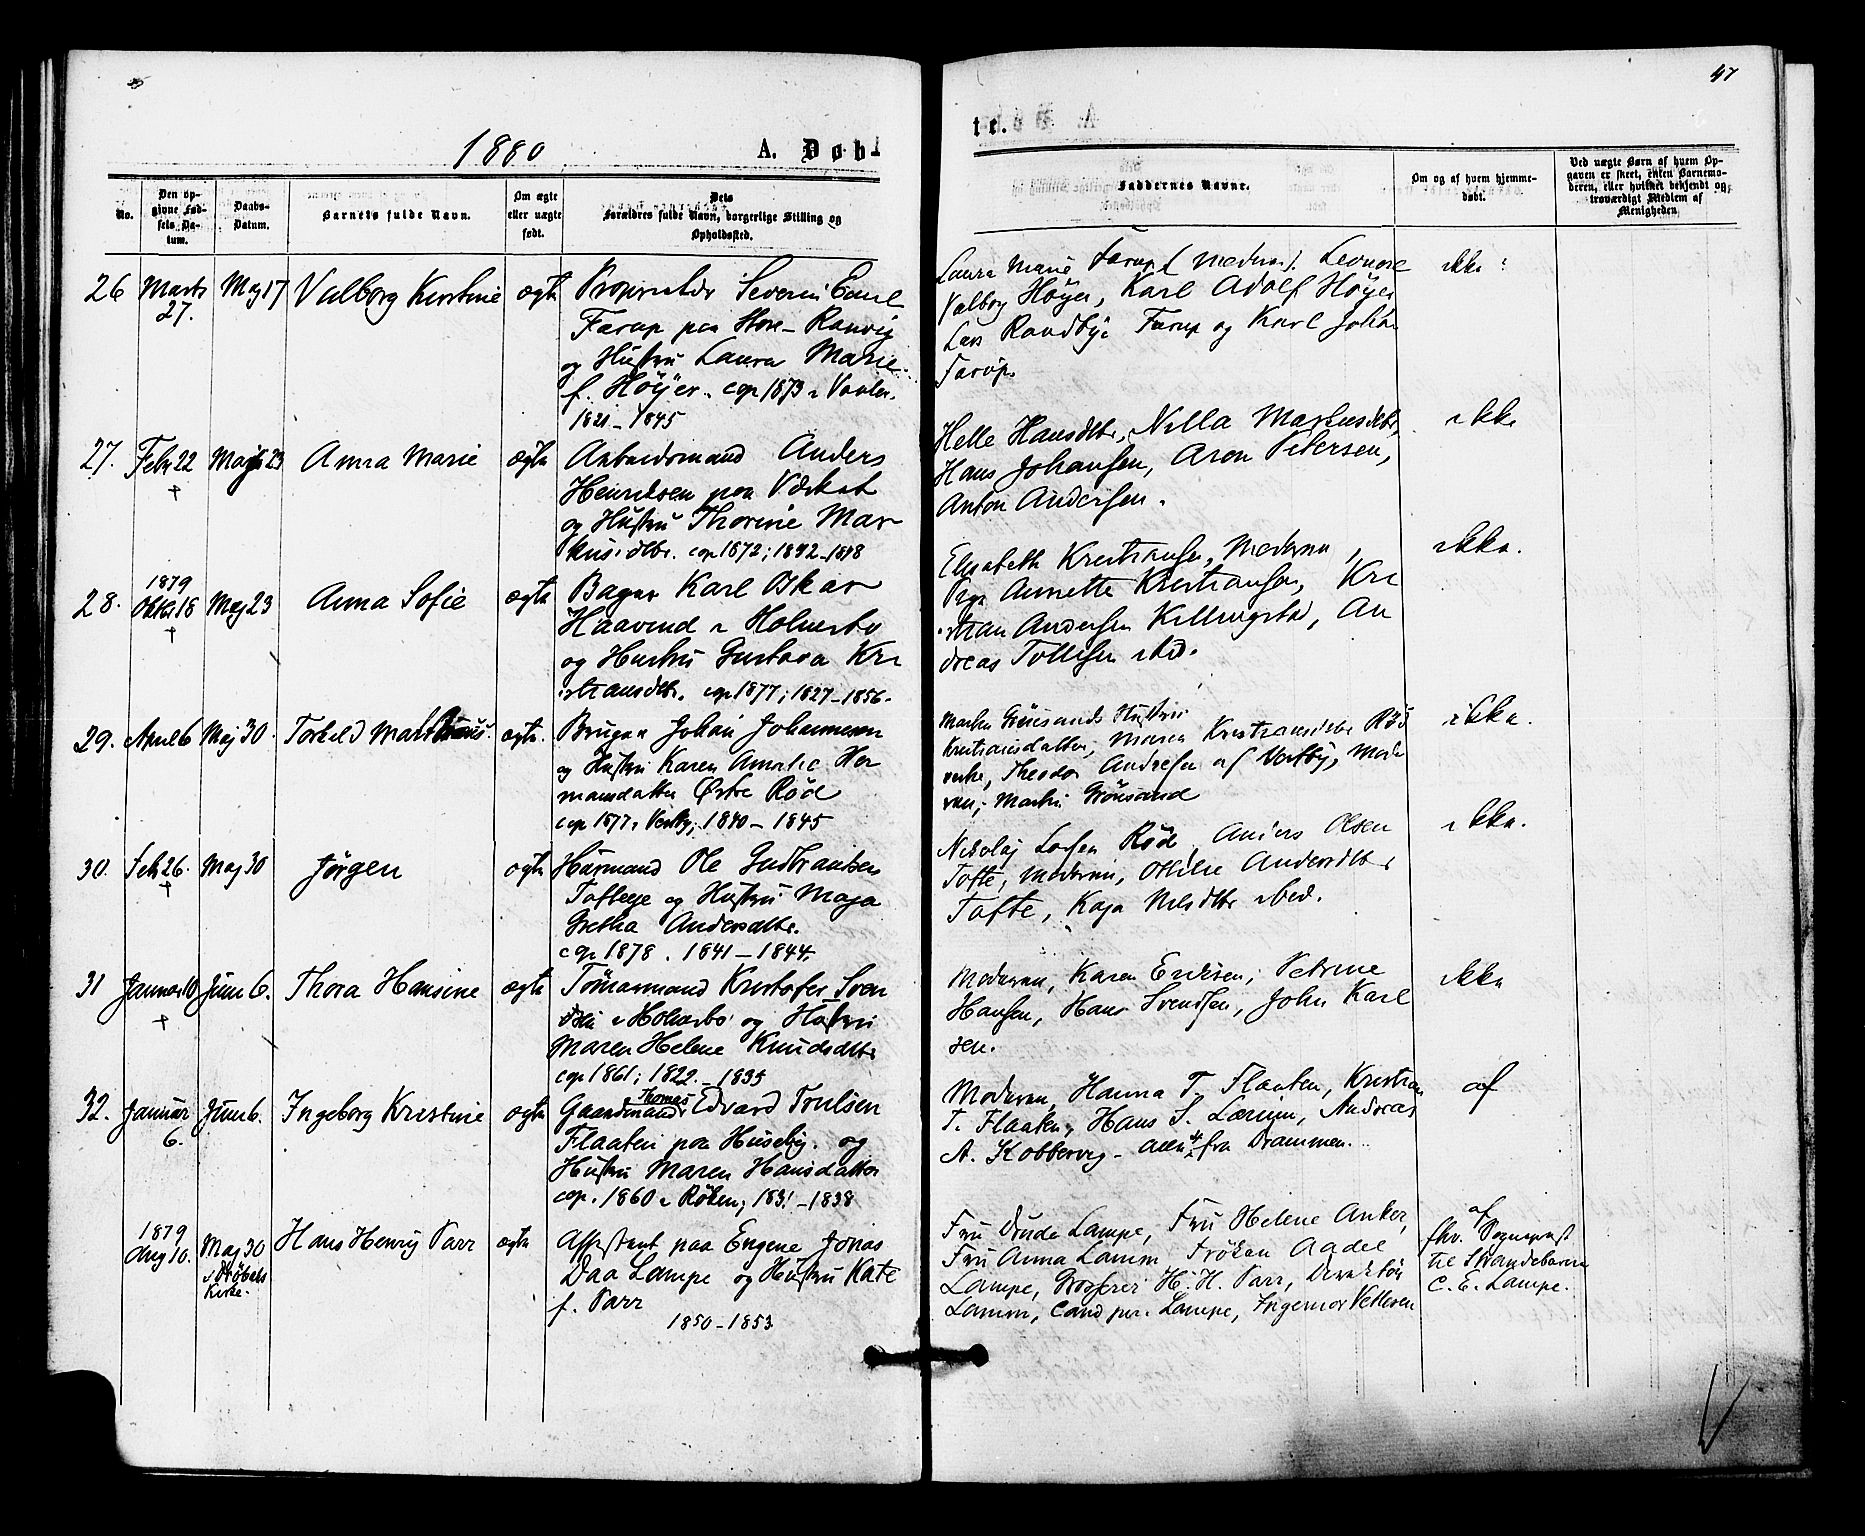 47
1880
A. Døbte.
No.
Den opgivne Fødsels Datum.
Daabs-Datum.
Barnets fulde Navn.
Om ægte eller uægte født.
Dets Forældres fulde Navn, borgerlige Stilling og Opholdssted.
Faddernes Navne.
Om og af hvem hjemmedøbt.
Ved uægte Børn af hvem Opgaven er skeet, enten Barnemoderen, eller hvilket bekjendt og troværdigt Medlem af Menigheden.
26 Marts 27. Maj 17 Valborg Kirstine ægte
Proprietær Severin Emil
Farup paa Store-Ranvig
og Hustru Laura Marie
f. Höyer. cop 1873 i Vaaler.
1821-1845
Laura Marie Farup (Moderen). Leonore
Valborg Höyer, Karl Adolf Höyer
Lars Randbye Farup og Karl Johan
Farup.
ikke
27. Febr 22 Maj 23 Anna Marie ægte
Arbeidsmand Anders
Henriksen paa
og Hustru Thorine Mar
kusdtr. cop 1872; 1842-1848
Helle Hansdtr, Nilla Markusdtr,
Hans Johansen, Aron Petersen,
Anton Andersen.
ikke
28. 1879 Oktbr 18 Maj 23 Anna Sofie ægte
Bager Karl Oskar
Haavind i Holmsbo
og Hustru Gustava Kri
stiansdtr. cop 1877; 1827-1856.
Elisabeth Kristiansen, Moderen,
Pige Annette Kristiansen, Kri
stian Andersen Killingstad, An
dreas Tollefsen ibid.
ikke.
29. April 6 Maj 30. Torkild ægte.
Bruger Johan Johannesen
og Hustru Karen Amalie Her
mansdatter Østre Röd
cop 1877 i Vestby; 1840-1845
Martin Grönsands Hustru
Kristiansdatter, Maren Kristiansdtr Röd
Theodor Andresen af Vestby, Mode
ren, Martin Grönsand
ikke.
30. Feb 26. Maj 30 Jørgen ægte
Husmand Ole Gudbrandsen
Tofteeje og Hustru Maja
Gretha Andersdtr.
cop 1878. 1841-1844.
Nikolaj Röd, Anders Olsen
Tofte, Moderen, Otilie Andersdtr
Tofte, Kaja Nilsdtr ibid.
ikke.
31 Januar 10 Juni 6. Thora Hansine ægte
Tömmermand Kristofer Sven
dsen i Holmsbo og Hustru
Maren Helene Knudsdtr
cop 1861; 1822.-1835
Moderen, Karen Eriksen, Petrine
Hansen, Hans Svendsen, John Karl
sen.
ikke
32. Januar 6. Juni 6. Ingeborg Kristine ægte
Gaardmand Thomas Edvard Toulsen
Flaaten paa Huseby. og
Hustru Maren Hansdatter
cop. 1860 i Röken; 1831-1838
Moderen, Hanna T. Flaaten, Kristian
T. Flaaten, Hans S. Andreas
A. Kobbervig - alle 4 fra Drammen.
af
1879 Aug 10. Maj 30 i Drøbaks Kirke. Hans Henrij Parr ægte
Assistent paa Eugene Jonas
Daa Lampe og Hustru Kate
f. Parr
1850-1853
Fru Druda Lampe, Fru Helene Anker,
Fru Anna Lamm Fröken Aadel
Lampe, Grosserer H. H. Parr, Direktör
Lamm, cand Lampe, Ingeniør Vetlesen
af fhv. Sogneprest
til Strandebarm
C. E. Lampe.